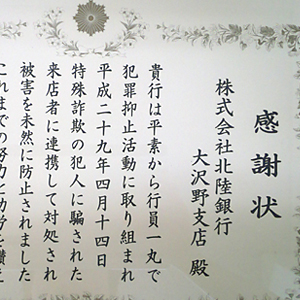 感謝状
株式会社北陸銀行
大沢野支店 殿
貴行は平素から行員一丸で
犯罪抑止活動に取り組まれ
平成二十九年四月十四日
特殊詐欺の犯人に騙された
来店者に連携して対処され
被害を未然に防止されました
これまでの努力と功労を讃え